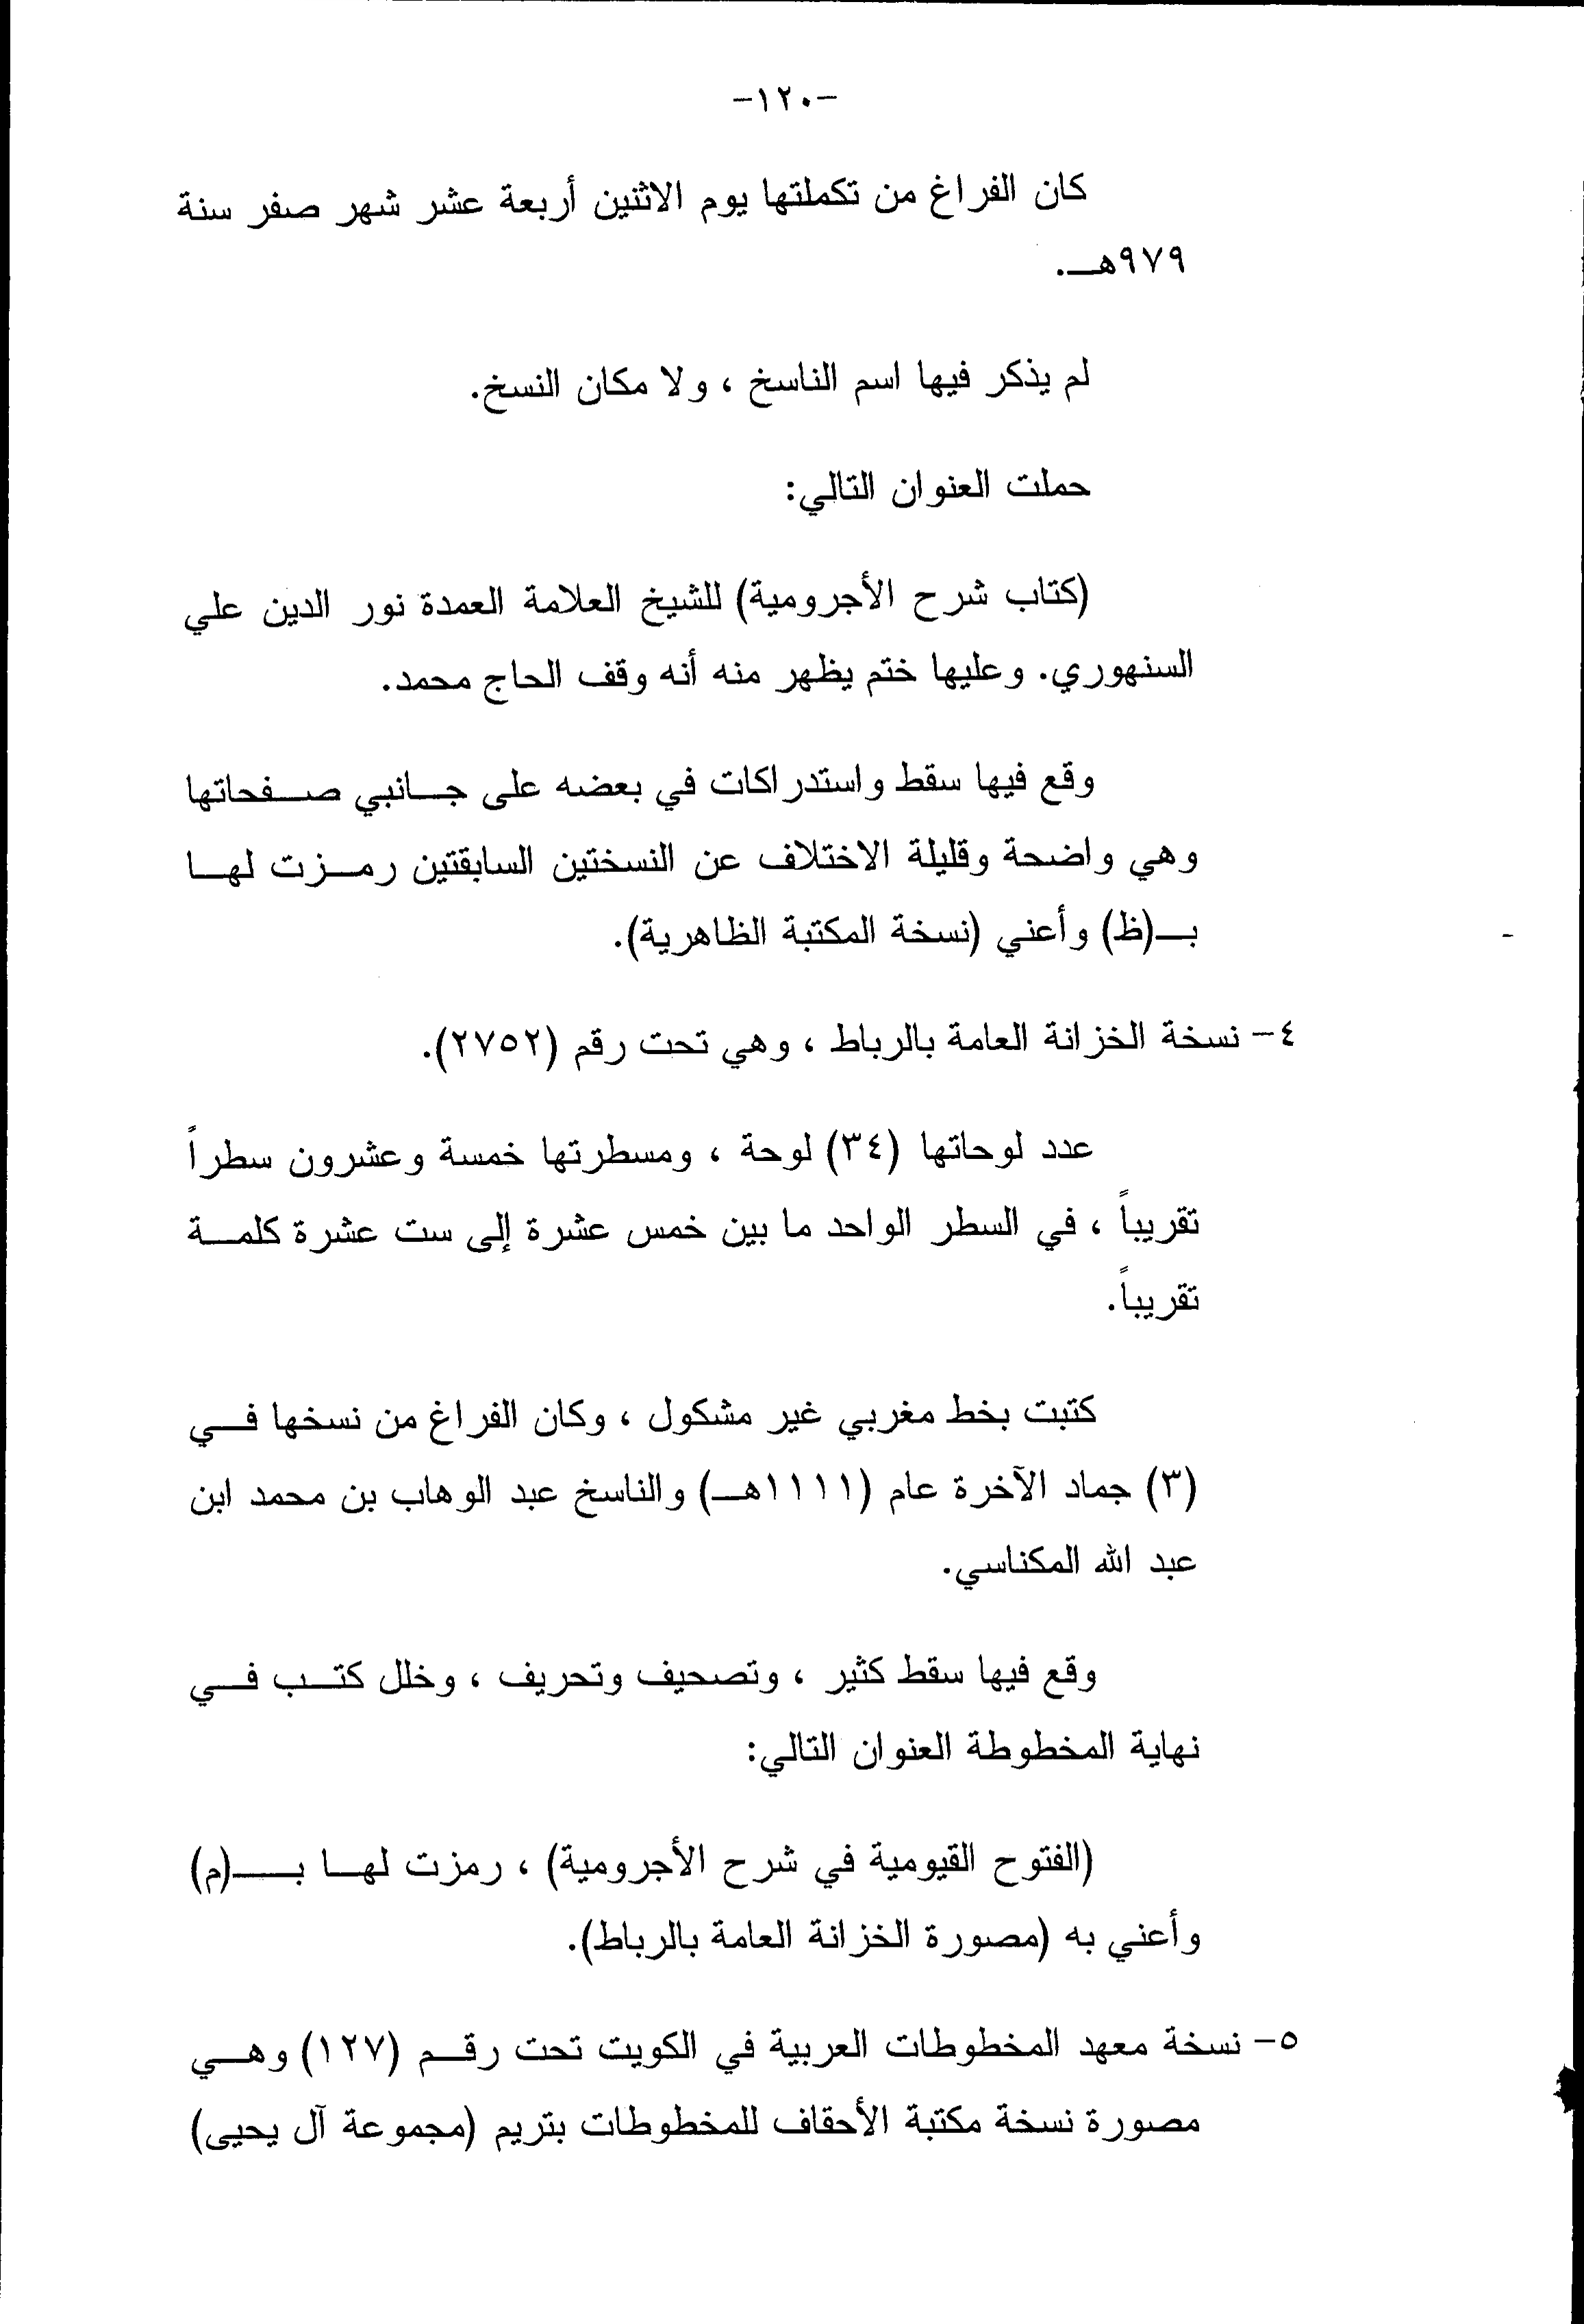 -١٢٠-
كان الفراغ من تكملتها يوم الاثنين أربعة عشر شهر صفر سنة
٩٧٩هـ.
لم يذكر فيها اسم الناسخ ، ولا مكان النسخ.
حملت العنوان التالي:
(كتاب شرح الأجرومية) للشيخ العلامة العمدة نور الدين علي
السنهوري. وعليها ختم يظهر منه أنه وقف الحاج محمد.
وقع فيها سقط واستدراكات في بعضه على جــانبي صــفحاتها
وهي واضحة وقليلة الاختلاف عن النسختين السابقتين رمــزت لهــا
بــ(ظ) وأعني (نسخة المكتبة الظاهرية).
٤- نسخة الخزانة العامة بالرباط ، وهي تحت رقم (٢٧٥٢).
عدد لوحاتها (٣٤) لوحة ، ومسطرتها خمسة وعشرون سطراً
تقريباً ، في السطر الواحد ما بين خمس عشرة إلى ست عشرة كلمــة
تقريباً.
كتبت بخط مغربي غير مشكول ، وكان الفراغ من نسخها فــي
(٣) جماد الآخرة عام (١١١١هــ) والناسخ عبد الوهاب بن محمد ابن
عبد الله المكناسي.
وقع فيها سقط كثير ، وتصحيف وتحريف ، وخلل كتــب فــي
نهاية المخطوطة العنوان التالي:
(الفتوح القيومية في شرح الأجرومية) ، رمزت لهــا بــــ(م)
وأعني به (مصورة الخزانة العامة بالرباط).
٥- نسخة معهد المخطوطات العربية في الكويت تحت رقــم (١٢٧) وهــي
مصورة نسخة مكتبة الأحقاف للمخطوطات بتريم (مجموعة آل يحيى)